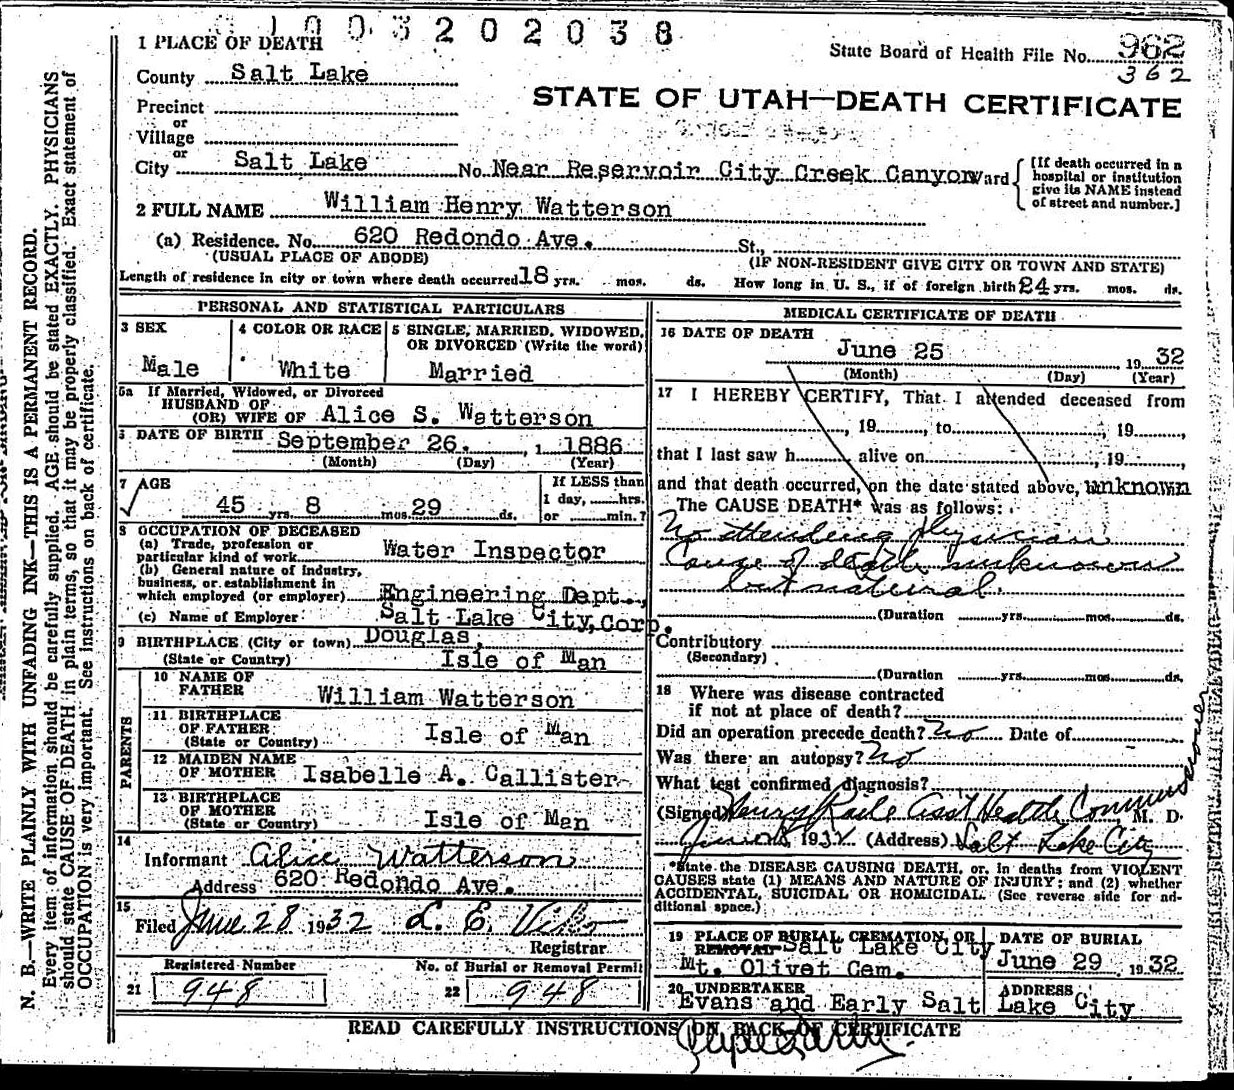 1003202038
1 PLACE OF DEATH
State Board of Health File No. 962
County Salt Lake
362
STATE OF UTAH—DEATH CERTIFICATE
Precinct
or
Village
or
City Salt Lake No. Near Reservoir City Creek Canyon Ward
[If death occurred in a hospital or institution give its NAME instead of street and number.]
2 FULL NAME William Henry Watterson
(a) Residence. No. 620 Redondo Ave. St.,
(USUAL PLACE OF ABODE) (IF NON-RESIDENT GIVE CITY OR TOWN AND STATE)
Length of residence in city or town where death occurred 18 yrs. mos. ds. How long in U. S., if of foreign birth 24 yrs. mos. ds.
PERSONAL AND STATISTICAL PARTICULARS
3 SEX
Male
4 COLOR OR RACE
White
5 SINGLE, MARRIED, WIDOWED, OR DIVORCED (Write the word)
Married
5a If Married, Widowed, or Divorced
HUSBAND OF
(OR) WIFE OF Alice S. Watterson
6 DATE OF BIRTH September 26, 1886
(Month) (Day) (Year)
7 AGE
45 yrs. 8 mos. 29 ds.
If LESS than
1 day, hrs.
or min.?
8 OCCUPATION OF DECEASED
(a) Trade, profession or
particular kind of work Water Inspector
(b) General nature of industry,
business, or establishment in
which employed (or employer) Engineering Dept.,
(c) Name of Employer Salt Lake City, Corp.
9 BIRTHPLACE (City or town) Douglas,
(State or Country) Isle of Man
PARENTS
10 NAME OF
FATHER William Watterson
11 BIRTHPLACE
OF FATHER
(State or Country) Isle of Man
12 MAIDEN NAME
OF MOTHER Isabelle A. Callister
13 BIRTHPLACE
OF MOTHER
(State or Country) Isle of Man
14
Informant Alice Watterson
Address 620 Redondo Ave.
15
Filed June 28 1932 L. E.
Registrar
Registered Number
21 948
No. of Burial or Removal Permit
22 948
MEDICAL CERTIFICATE OF DEATH
16 DATE OF DEATH
June 25 1932
(Month) (Day) (Year)
17 I HEREBY CERTIFY, That I attended deceased from
, 19 , to , 19 ,
that I last saw h alive on , 19 ,
and that death occurred, on the date stated above, unknown
The CAUSE DEATH* was as follows:
No attending physician
Cause of death unknown
but natural.
(Duration yrs. mos. ds.
Contributory
(Secondary)
(Duration yrs. mos. ds.
18 Where was disease contracted
if not at place of death?
Did an operation precede death? No Date of
Was there an autopsy? No
What test confirmed diagnosis?
(Signed) Henry Raile Asst Health Commissioner M. D.
1932 (Address) Salt Lake City
*State the DISEASE CAUSING DEATH, or, in deaths from VIOLENT
CAUSES state (1) MEANS AND NATURE OF INJURY; and (2) whether
ACCIDENTAL, SUICIDAL OR HOMICIDAL. (See reverse side for additional space.)
19 PLACE OF BURIAL CREMATION, OR
REMOVAL Salt Lake City
Mt. Olivet Cem.
DATE OF BURIAL
June 29 1932
20 UNDERTAKER
Evans and Early Salt
ADDRESS
Lake City
READ CAREFULLY INSTRUCTIONS ON BACK OF CERTIFICATE
N. B.—WRITE PLAINLY WITH UNFADING INK—THIS IS A PERMANENT RECORD.
Every item of information should be carefully supplied. AGE should be stated EXACTLY. PHYSICIANS
should state CAUSE OF DEATH in plain terms, so that it may be properly classified. Exact statement of
OCCUPATION is very important. See instructions on back of certificate.